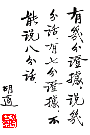 有幾分證據，說幾
分話。有七分證據，不
能說八分話。
胡適